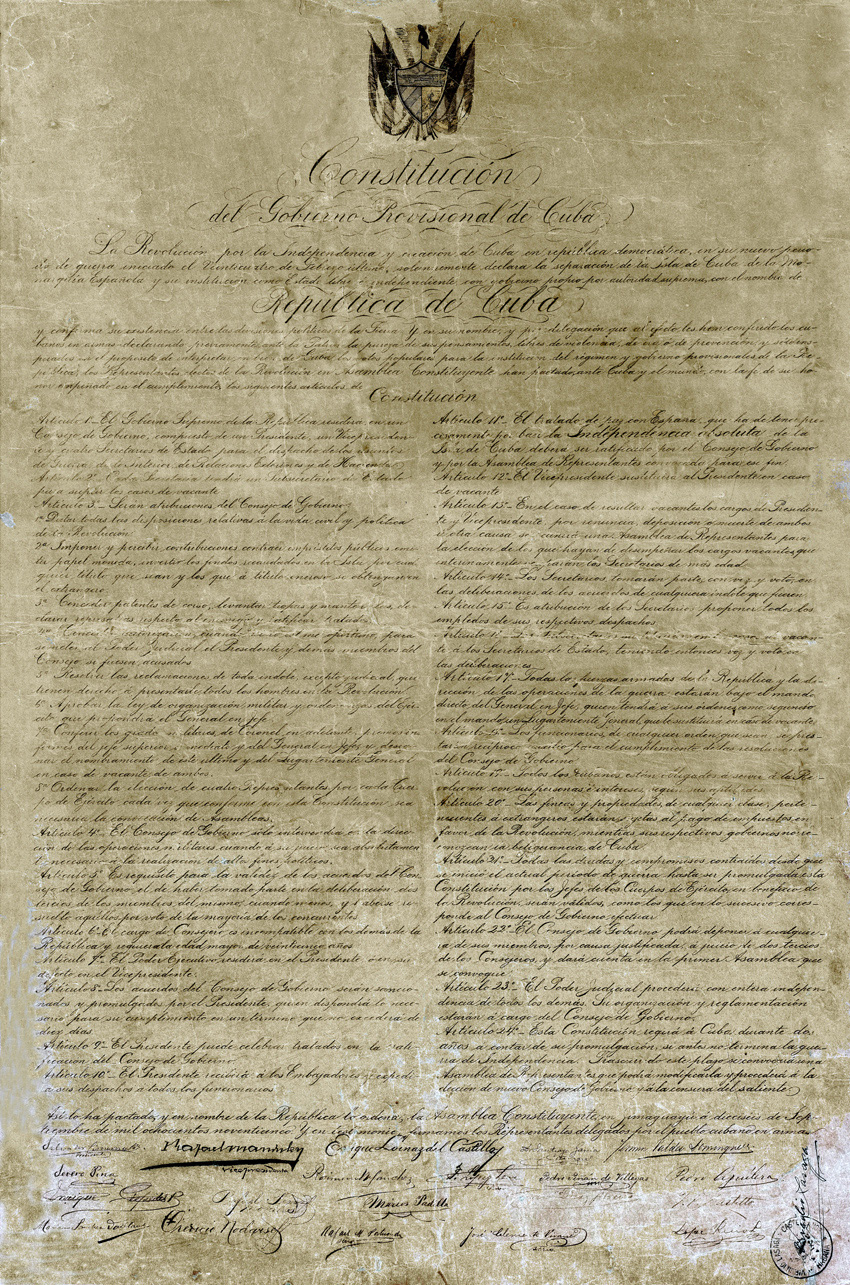 Constitución
del Gobierno Provisional de Cuba
La Revolución por la Independencia y creación de Cuba en república democrática, en su nuevo perio-
do de guerra iniciado el Veinticuatro de Febrero último, solemnemente declara la separación de la Isla de Cuba de la Mo-
narquía Española y su institución como Estado libre é independiente con gobierno propio por autoridad suprema, con el nombre de
República de Cuba
y confirma su existencia entre las divisiones políticas de la Tierra. Y en su nombre, y por delegación que al efecto les han conferido los cu-
banos en armas, declarando previamente ante la Patria la pureza de sus pensamientos, libres de violencia, de ira ó de prevención, y
propósito de interpretar de Cuba los votos populares para la institución del régimen y gobierno provisionales de la Re-
pública, los Representantes electos de la Revolución en Asamblea Constituyente han pactado ante Cuba y el mundo, con la fe de su ho-
nor en el cumplimiento, los siguientes artículos de
Constitución
Artículo 1º El Gobierno Supremo de la República residirá en un
Consejo de Gobierno, compuesto de un Presidente, un Vicepresiden-
te y cuatro Secretarios de Estado para el despacho de los asuntos
de Guerra, de lo Interior, de Relaciones Exteriores, y de Hacienda
Artículo 2º Cada Secretario tendrá un Subsecretario de Estado
para suplir los casos de vacante
Artículo 3º Serán atribuciones del Consejo de Gobierno:
1ª Dictar todas las disposiciones relativas á la vida civil y política
de la Revolución
2ª Imponer y percibir contribuciones, contraer empréstitos públicos, emi-
tir papel moneda, invertir los fondos recaudados en la Isla, por cual
quier título que sean y los que á título oneroso se obtengan en
el extranjero
3ª Conceder patentes de corso, levantar tropas y mantenerlas, de-
clarar represalias respecto al enemigo y ratificar tratados
4ª Conceder autorización, cuando así lo estime oportuno, para
someter al Poder Judicial el Presidente y demás miembros del
Consejo si fuesen acusados
5ª Resolver las reclamaciones de toda índole, excepto judicial, que
tienen derecho á presentar todos los hombres en la Revolución
6ª Aprobar la ley de organización militar y ordenanzas del Ejér-
cito, que propondrá el General en Jefe
7ª Conferir los grados militares de Coronel en adelante, previos in-
formes del jefe superior inmediato y del General en Jefe, y desig-
nar el nombramiento de este último y del Lugarteniente General
en caso de vacante de ambos.
8ª Ordenar la elección de cuatro Representantes por cada Cuer-
po de Ejército cada vez que conforme con esta Constitución sea
necesaria la convocación de Asambleas.
Artículo 4º El Consejo de Gobierno sólo intervendrá en la direc-
ción de las operaciones militares, cuando á su juicio sea absolutamen-
te necesario á la realización de altos fines políticos.
Artículo 5º Es requisito para la validez de los acuerdos del Con-
sejo de Gobierno, el de haber tomado parte en la deliberación dos
tercios de los miembros del mismo cuando menos, y haberse re-
suelto aquellos por voto de la mayoría de los concurrentes
Artículo 6º El cargo de Consejero, es incompatible con los demás de la
República y requiere la edad mayor de veintiún años
Artículo 7º El Poder Ejecutivo residirá en el Presidente o en su
defecto en el Vicepresidente.
Artículo 8º Los acuerdos del Consejo de Gobierno serán sancio-
nados y promulgados por el Presidente, quien dispondrá lo nece-
sario para su cumplimiento en un término que no excederá de
diez días.
Artículo 9º El Presidente puede celebrar tratados con la rati-
ficación del Consejo de Gobierno
Artículo 10º El Presidente recibirá á los Embajadores y expedi-
rá sus despachos á todos los funcionarios.
Artículo 11º El tratado de paz con España, que ha de tener pre-
cisamente por base la Independencia absoluta de la
Isla de Cuba, deberá ser ratificado por el Consejo de Gobierno
y por la Asamblea de Representantes convocada para ese fin.
Artículo 12º El Vicepresidente sustituirá al Presidente en caso
de vacante
Artículo 13º En el caso de resultar vacantes los cargos de Presiden-
te y Vicepresidente por renuncia, deposición o muerte de ambos
ú otra causa se reunirá una Asamblea de Representantes para
la elección de los que hayan de desempeñar los cargos vacantes, que
interinamente ocuparán los Secretarios de más edad
Artículo 14º Los Secretarios tomarán parte, con voz y voto en
las deliberaciones de los acuerdos de cualquiera índole que fueren.
Artículo 15º Es atribución de los Secretarios proponer todos los
empleados de sus respectivos despachos
Artículo 16º Los Subsecretarios sustituirán en casos de vacan-
te á los Secretarios de Estado, teniendo entonces voz y voto en
las deliberaciones
Artículo 17º Todas las fuerzas armadas de la República y la di-
rección de las operaciones de la guerra estarán bajo el mando
directo del General en Jefe, quien tendrá á sus órdenes, como segundo
en el mando un Lugarteniente General que le sustituirá en caso de vacante
Artículo 18º Los funcionarios de cualquier orden que sean se pres-
tarán recíproco auxilio para el cumplimiento de las resoluciones
del Consejo de Gobierno
Artículo 19º Todos los cubanos están obligados á servir á la Re-
volución con sus personas é intereses, según sus aptitudes
Artículo 20º Las fincas y propiedades, de cualquier clase, perte-
necientes á extranjeros estarán sujetas al pago de impuestos en
favor de la Revolución, mientras sus respectivos gobiernos no re-
conozcan la beligerancia de Cuba
Artículo 21º Todas las deudas y compromisos contraídos desde que
se inició el actual periodo de guerra hasta ser promulgada esta
Constitución por los Jefes de los Cuerpos de Ejército, en beneficio de
la Revolución, serán válidos, como los que en lo sucesivo corres-
ponde al Consejo de Gobierno efectuar
Artículo 22º El Consejo de Gobierno podrá deponer á cualquie-
ra de sus miembros, por causa justificada, á juicio de dos tercios
de los Consejeros, y dará cuenta en la primer Asamblea que
se convoque
Artículo 23º El Poder judicial procederá con entera indepen-
dencia de todos los demás. Su organización y reglamentación
estarán á cargo del Consejo de Gobierno.
Artículo 24º Esta Constitución regirá á Cuba durante dos
años á contar de su promulgación, si antes no termina la gue-
rra de Independencia. Trascurrido este plazo, se convocará una
Asamblea de Representantes que podrá modificarla y procederá á la
elección de nuevo Consejo de Gobierno y á la censura del saliente.
Así lo ha pactado, y en nombre de la República lo ordena, la Asamblea Constituyente en Jimaguayú á dieciséis de Sep-
tiembre de mil ochocientos noventicinco. Y en testimonio firmamos los Representantes delegados por el pueblo cubano en armas
Rafael Manduley
Vicepresidente
Enrique Loinaz del Castillo
Fermín Valdés Domínguez
Severo Pina
Pedro Piñán de Villegas
Pedro Aguilera
Marcos Padilla
Rafael M. Portuondo
Lope Recio